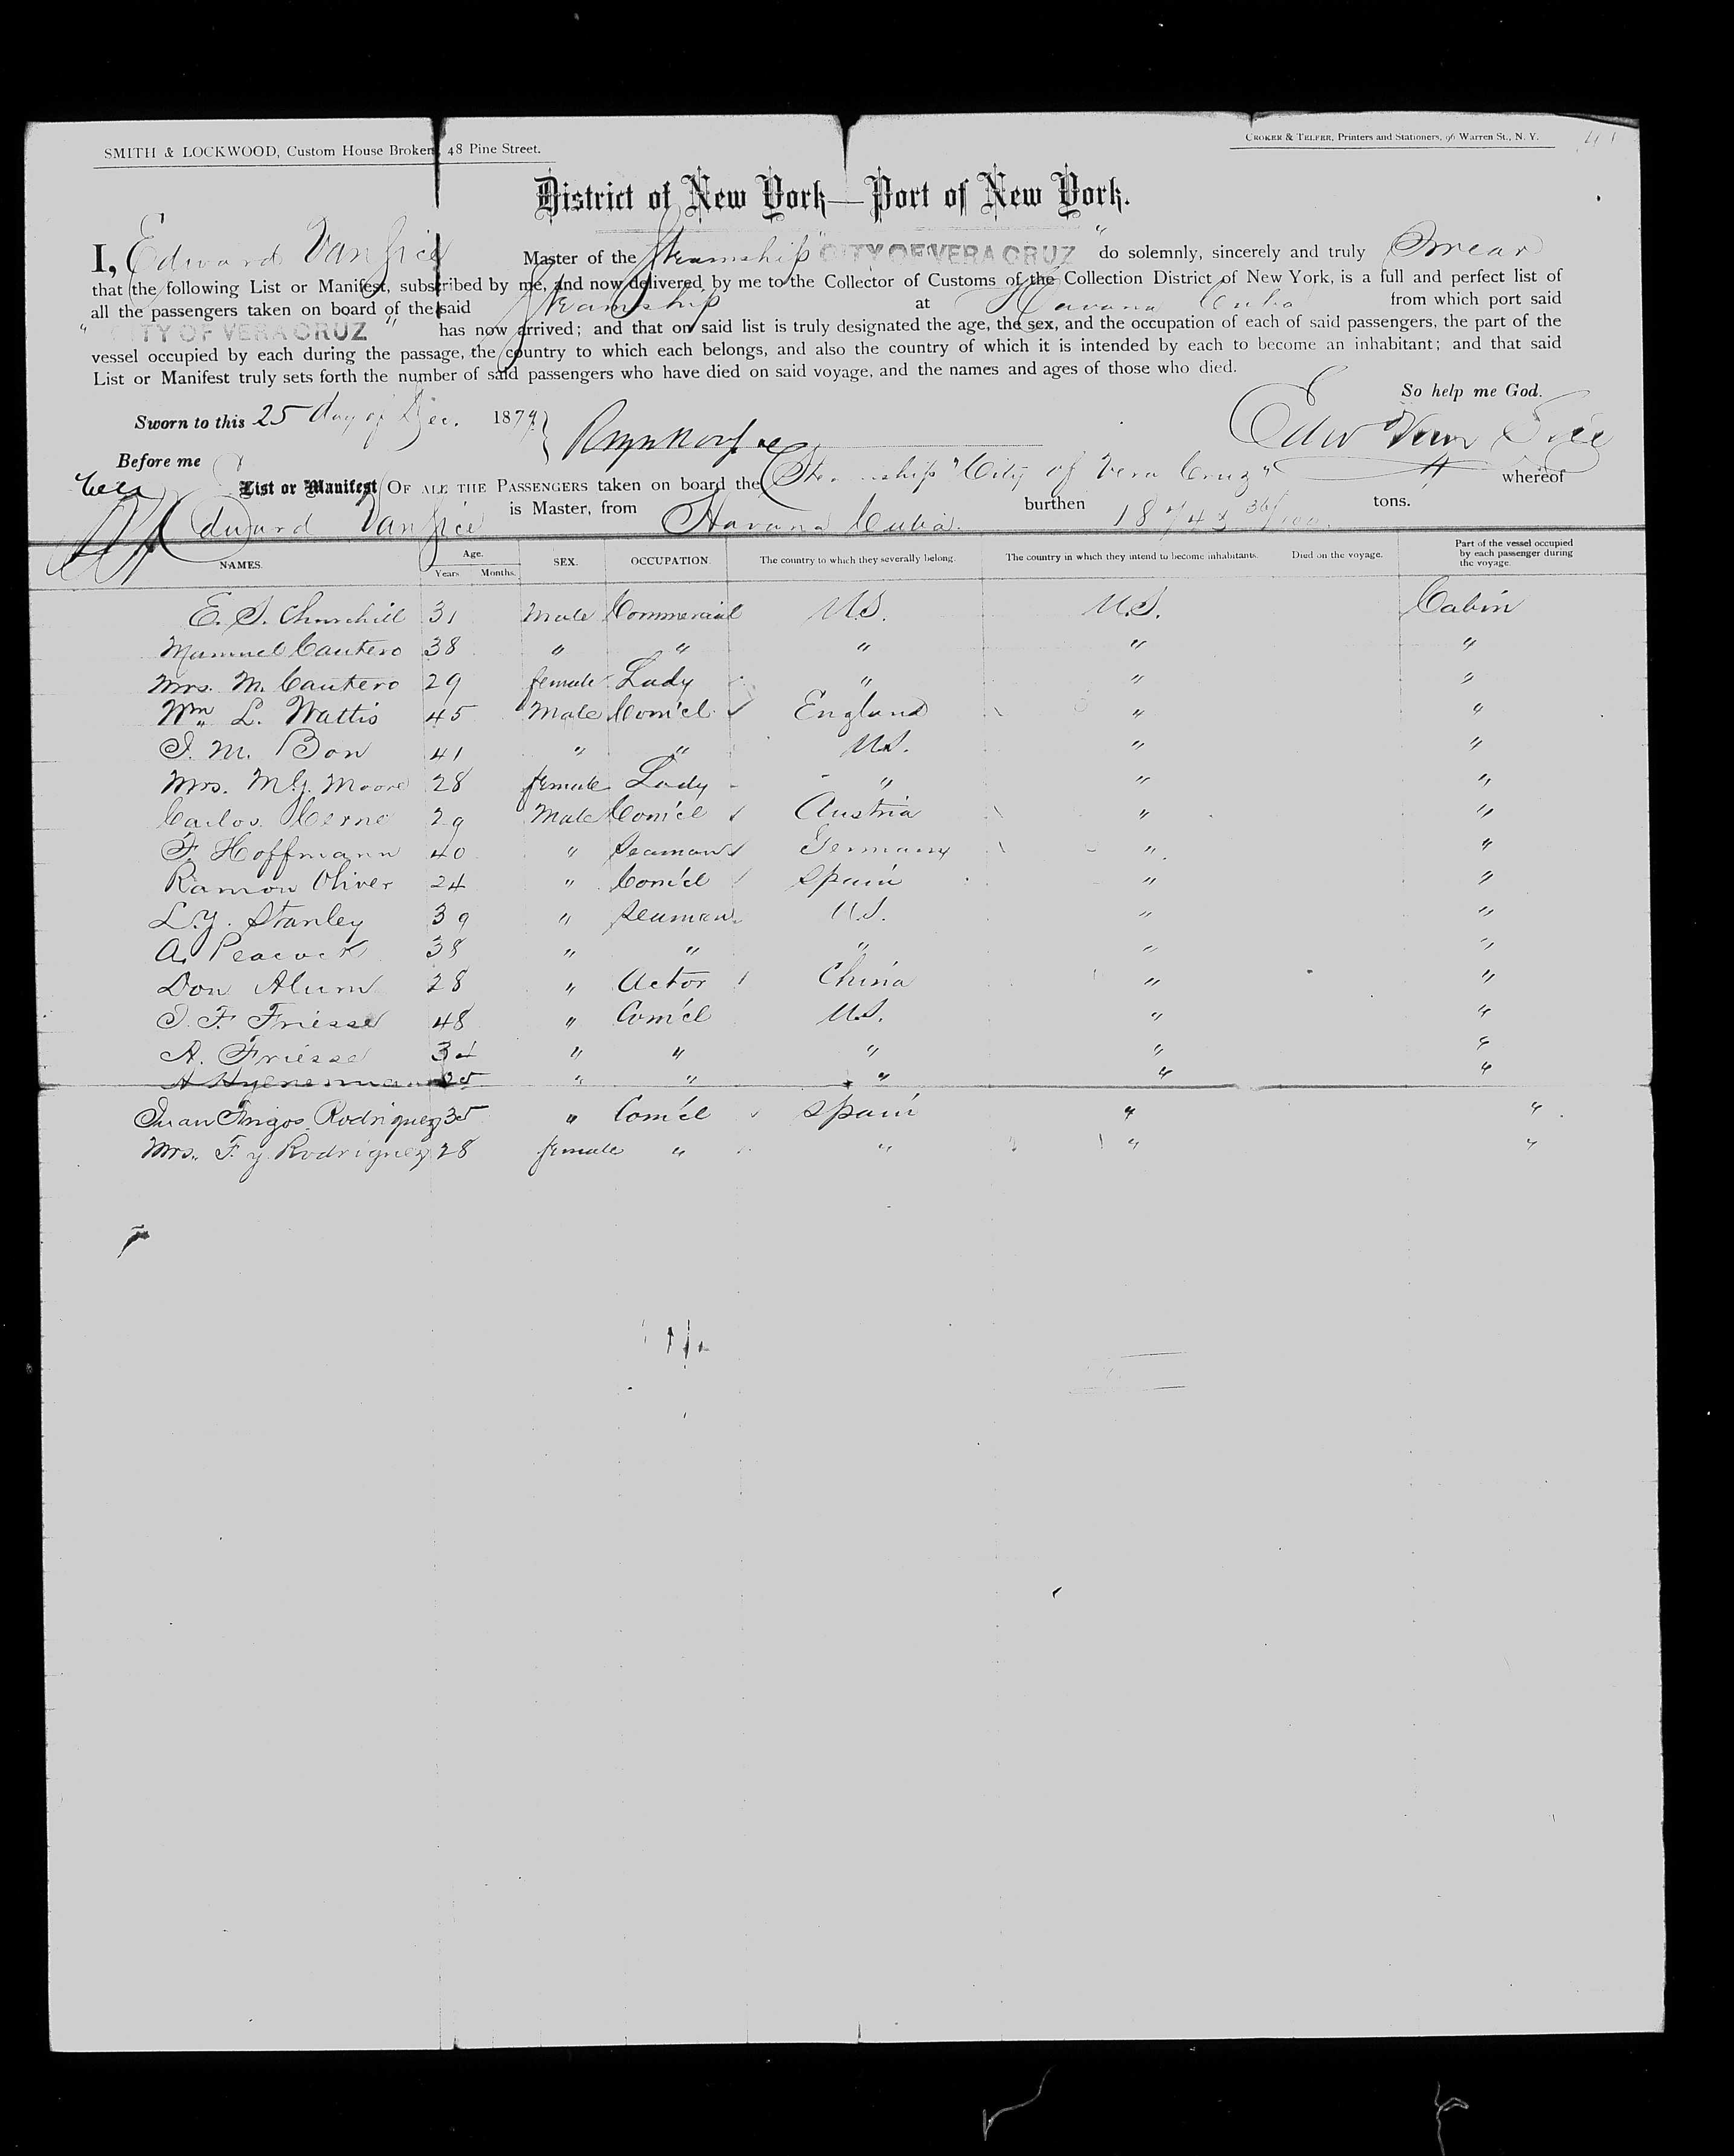 SMITH & LOCKWOOD, Custom House Brokers, 48 Pine Street.
CROKER & TELFER, Printers and Stationers, 96 Warren St., N. Y.
District of New York—Port of New York.
I, Edward Van Sice Master of the Steamship "CITY OF VERA CRUZ" do solemnly, sincerely and truly Swear
that the following List or Manifest, subscribed by me, and now delivered by me to the Collector of Customs of the Collection District of New York, is a full and perfect list of
all the passengers taken on board of the said Steamship at Havana Cuba from which port said
"CITY OF VERA CRUZ" has now arrived; and that on said list is truly designated the age, the sex, and the occupation of each of said passengers, the part of the
vessel occupied by each during the passage, the country to which each belongs, and also the country of which it is intended by each to become an inhabitant; and that said
List or Manifest truly sets forth the number of said passengers who have died on said voyage, and the names and ages of those who died.
So help me God.
Sworn to this 25 day of Dec. 1879. Edw Van Sice
Before me
List or Manifest OF ALL THE PASSENGERS taken on board the Steamship "City of Vera Cruz" whereof
Edward Van Sice is Master, from Havana Cuba. burthen tons.
NAMES. Age. Years Months. SEX. OCCUPATION. The country to which they severally belong. The country in which they intend to become inhabitants. Died on the voyage. Part of the vessel occupied by each passenger during the voyage.
E. S. Churchill 31 Male Commercial U.S. U.S. Cabin
Manuel Cautero 38 " " " " "
Mrs. M. Cautero 29 female Lady " " "
Wm. L. Wattis 45 Male Com'cl England " "
J. M. Bon 41 " " U.S. " "
Mrs. M. G. Moore 28 female Lady " " "
Carlos Cerne 29 Male Com'cl Austria " "
F. Hoffmann 40 " Seaman Germany " "
Ramon Oliver 24 " Com'cl Spain " "
L. Y. Stanley 39 " Seaman U.S. " "
A. Peacock 38 " " " " "
Don Alum 28 " Actor China " "
J. F. Friesse 48 " Com'cl U.S. " "
A. Friesse " " " " "
25 " " " " "
Juan Rodriguez 35 " Com'cl Spain " "
Mrs. F. y Rodriguez 28 female " " " "